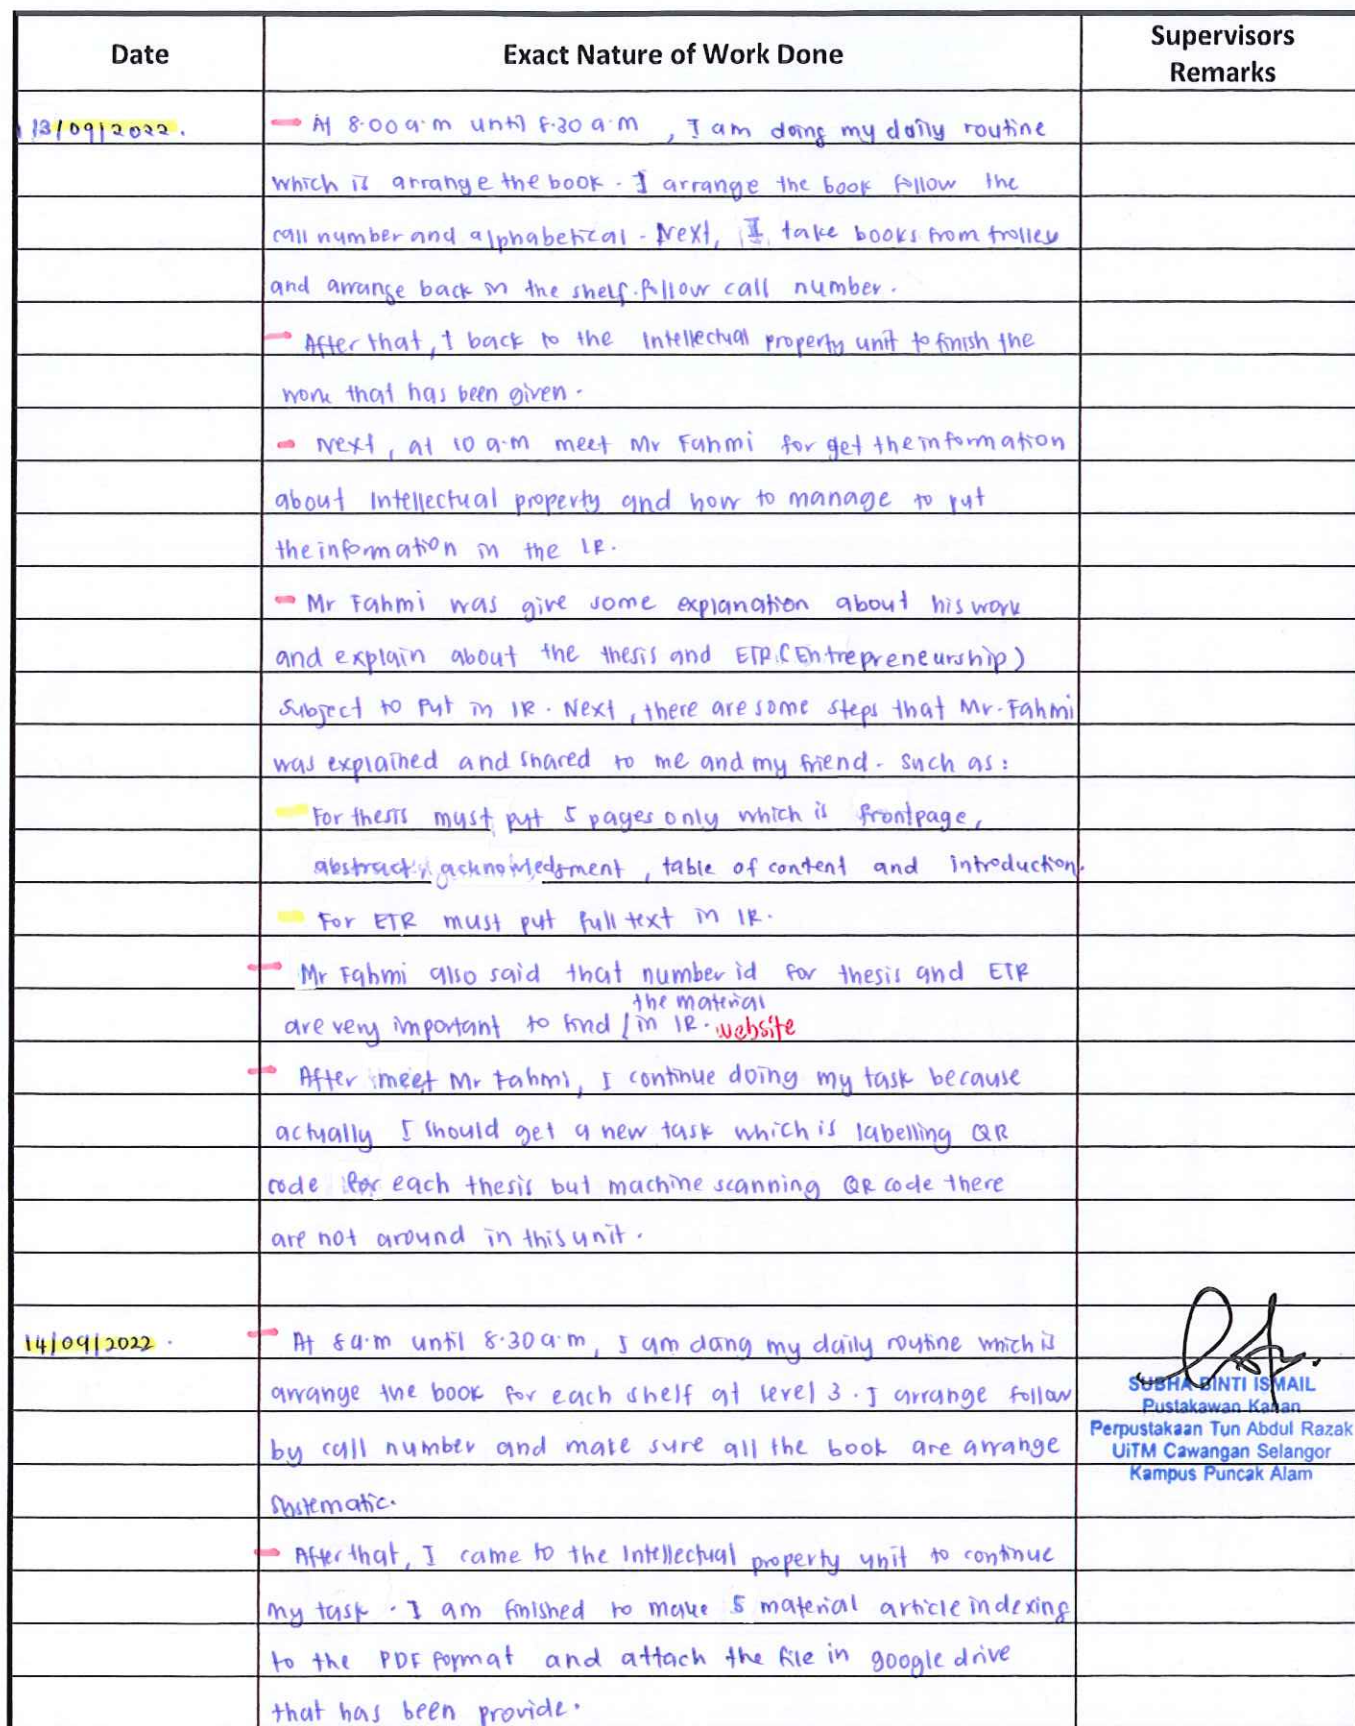 Date
Exact Nature of Work Done
Supervisors
Remarks
13/09/2022.
At 8.00 a.m until 8.30 a.m , I am doing my daily routine
which is arrange the book . I arrange the book follow the
call number and alphabetical . Next, I take books from trolley
and arrange back in the shelf follow call number.
After that, I back to the Intellectual property unit to finish the
work that has been given .
Next, at 10 a.m meet Mr Fahmi for get the information
about Intellectual property and how to manage to put
the information in the IR.
Mr Fahmi was give some explanation about his work
and explain about the thesis and ETR (Entrepreneurship)
Subject to put in IR . Next, there are some steps that Mr. Fahmi
was explained and shared to me and my friend . Such as :
For thesis must put 5 pages only which is frontpage,
abstract, acknowledgment , table of content and introduction.
For ETR must put full text in IR.
Mr Fahmi also said that number id for thesis and ETR
the material
are very important to find / in IR. website
After meet Mr Fahmi, I continue doing my task because
actually I should get a new task which is labelling QR
code for each thesis but machine scanning QR code there
are not around in this unit .
14/09/2022 .
At 8 a.m until 8.30 a.m, I am doing my daily routine which is
arrange the book for each shelf at level 3 . I arrange follow
by call number and make sure all the book are arrange
systematic.
SUBHA BINTI ISMAIL
Pustakawan Kanan
Perpustakaan Tun Abdul Razak
UiTM Cawangan Selangor
Kampus Puncak Alam
After that, I came to the Intellectual property unit to continue
my task . I am finished to make 5 material article indexing
to the PDF format and attach the file in google drive
that has been provide.